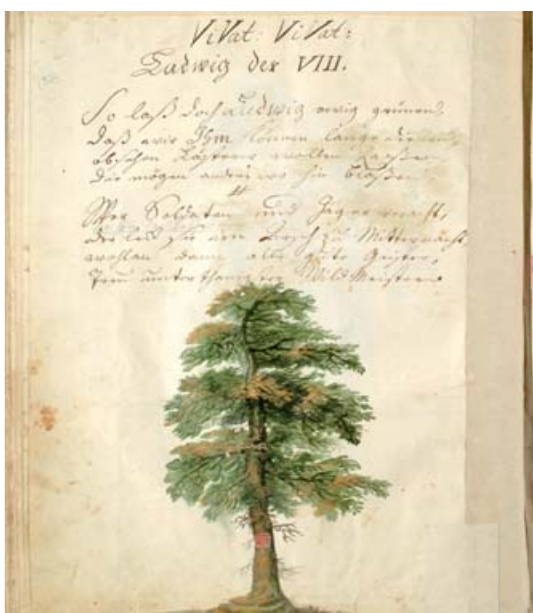 ViVat: ViVat:
Ludwig der VIII.
So laß doch Ludwig ewig grünen,
Daß wir Ihm können lange dienen,
obschon wollen
die mögen anders wo hin blaßen
Wer Soldaten und Jäger macht,
der zu Mitternacht,
wohlan dann alle gute Geister,
Treu unterthänigster Wild Meister